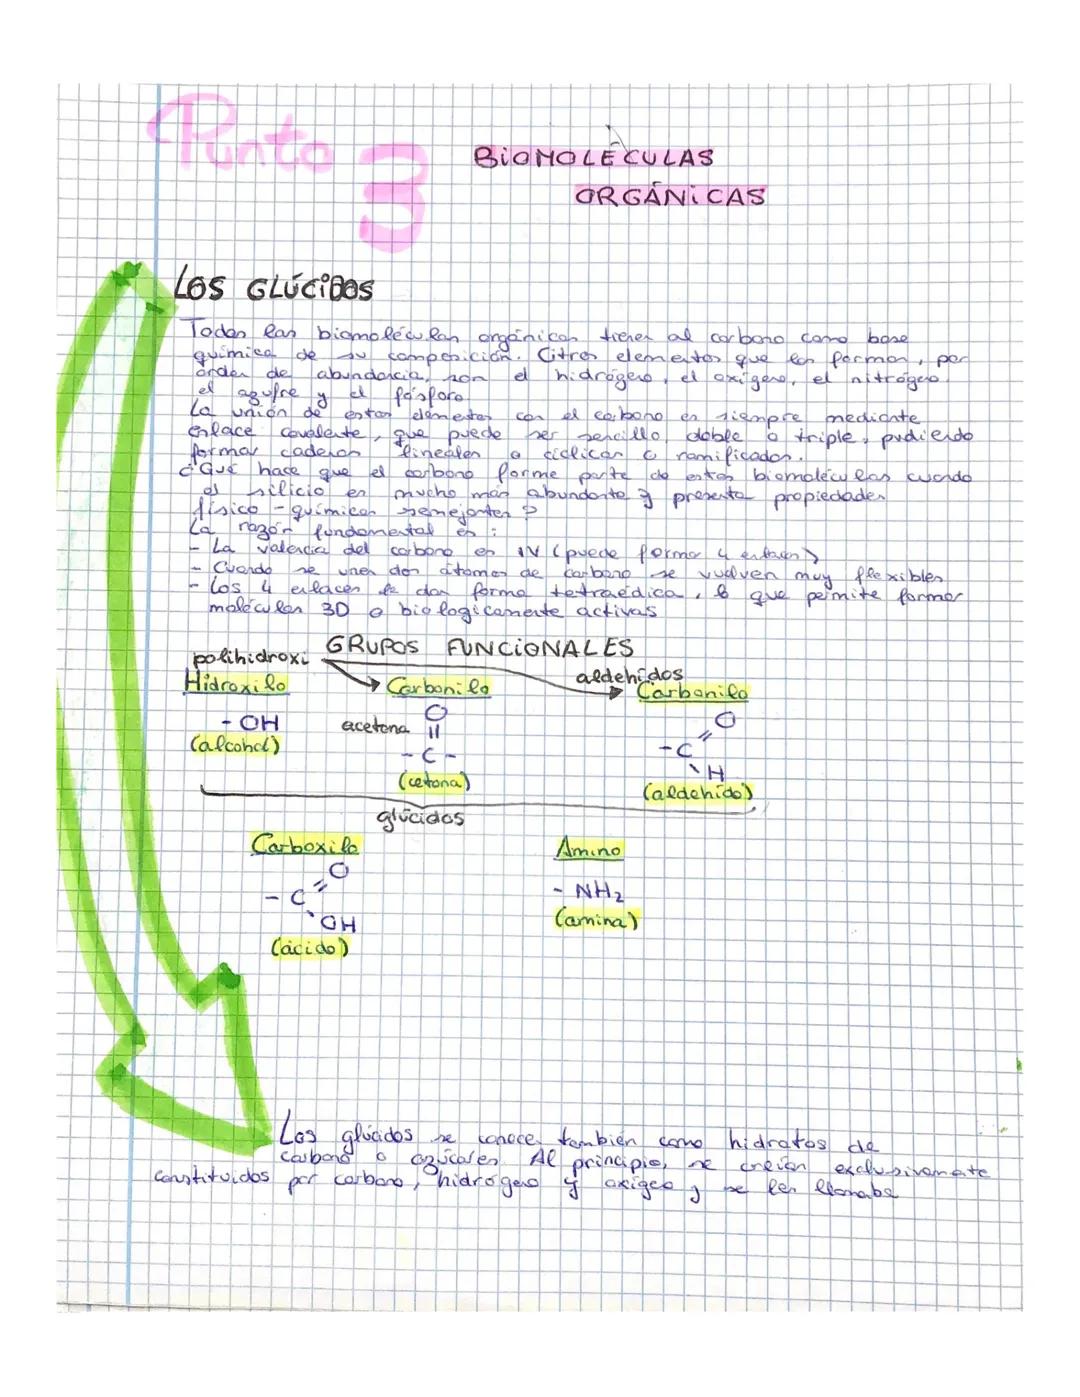 Punto 3
BIOMOLÉCULAS
ORGÁNICAS
LOS GLÚCIDOS
Todas las biomoléculas orgánicas tienen al carbono como base
química de su composición. Otros elementos que las forman, por
orden de abundancia, son el hidrógeno, el oxígeno, el nitrógeno,
el azufre y el fósforo
La unión de estos elementos con el carbono es siempre mediante
enlace covalente, que puede ser sencillo, doble o triple, pudiendo
formar cadenas lineales o cíclicas o ramificadas.
¿Qué hace que el carbono forme parte de estas biomoléculas cuando
el silicio es mucho más abundante y presenta propiedades
físico-químicas semejantes?
La razón fundamental es:
- La valencia del carbono es IV (puede formar 4 enlaces)
- Cuando se unen dos átomos de carbono se vuelven muy flexibles
- Los 4 enlaces le dan forma tetraédica, lo que permite formar
moléculas 3D o biologicamente activas
GRUPOS FUNCIONALES
polihidroxi
aldehidos
Hidroxilo Carbonilo Carbonilo
- OH
(alcohol)
acetona
O
||
- C -
(cetona)
O
- C
H
(aldehído)
glúcidos
Carboxilo Amino
O
- C
OH
(ácido)
- NH₂
(amina)
Los glúcidos se conocen también como hidratos de
carbono o azúcares. Al principio, se creían exclusivamente
constituidos por carbono, hidrógeno y oxígeo y se les llamaba